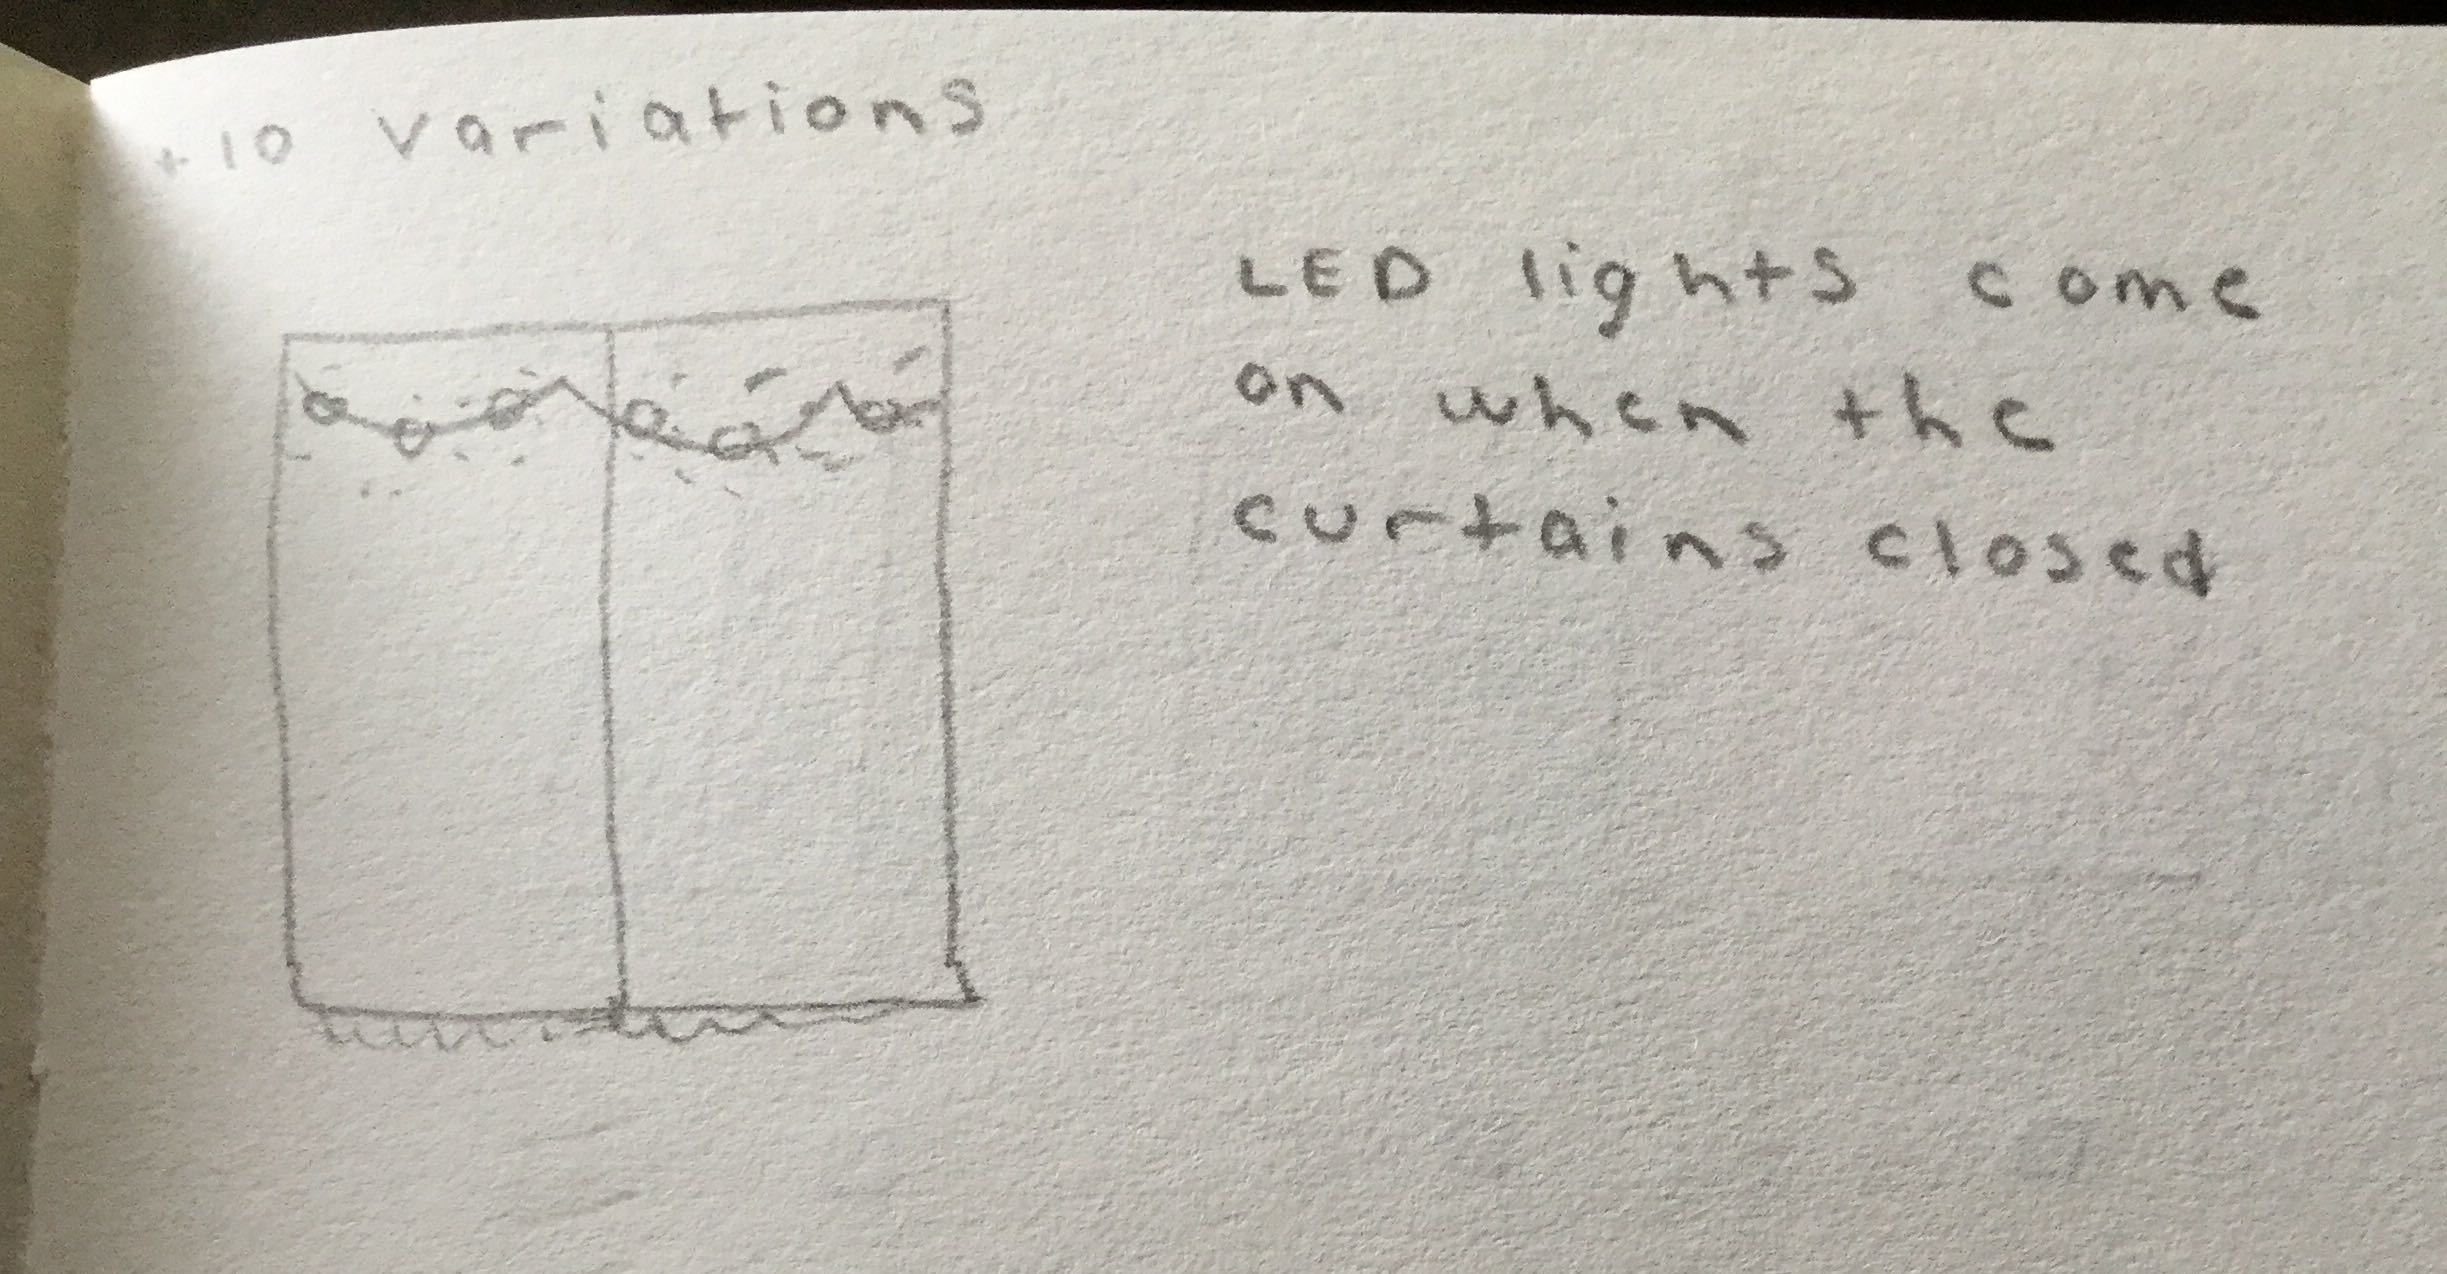 +10 variations
LED lights come
on when the
curtains closed